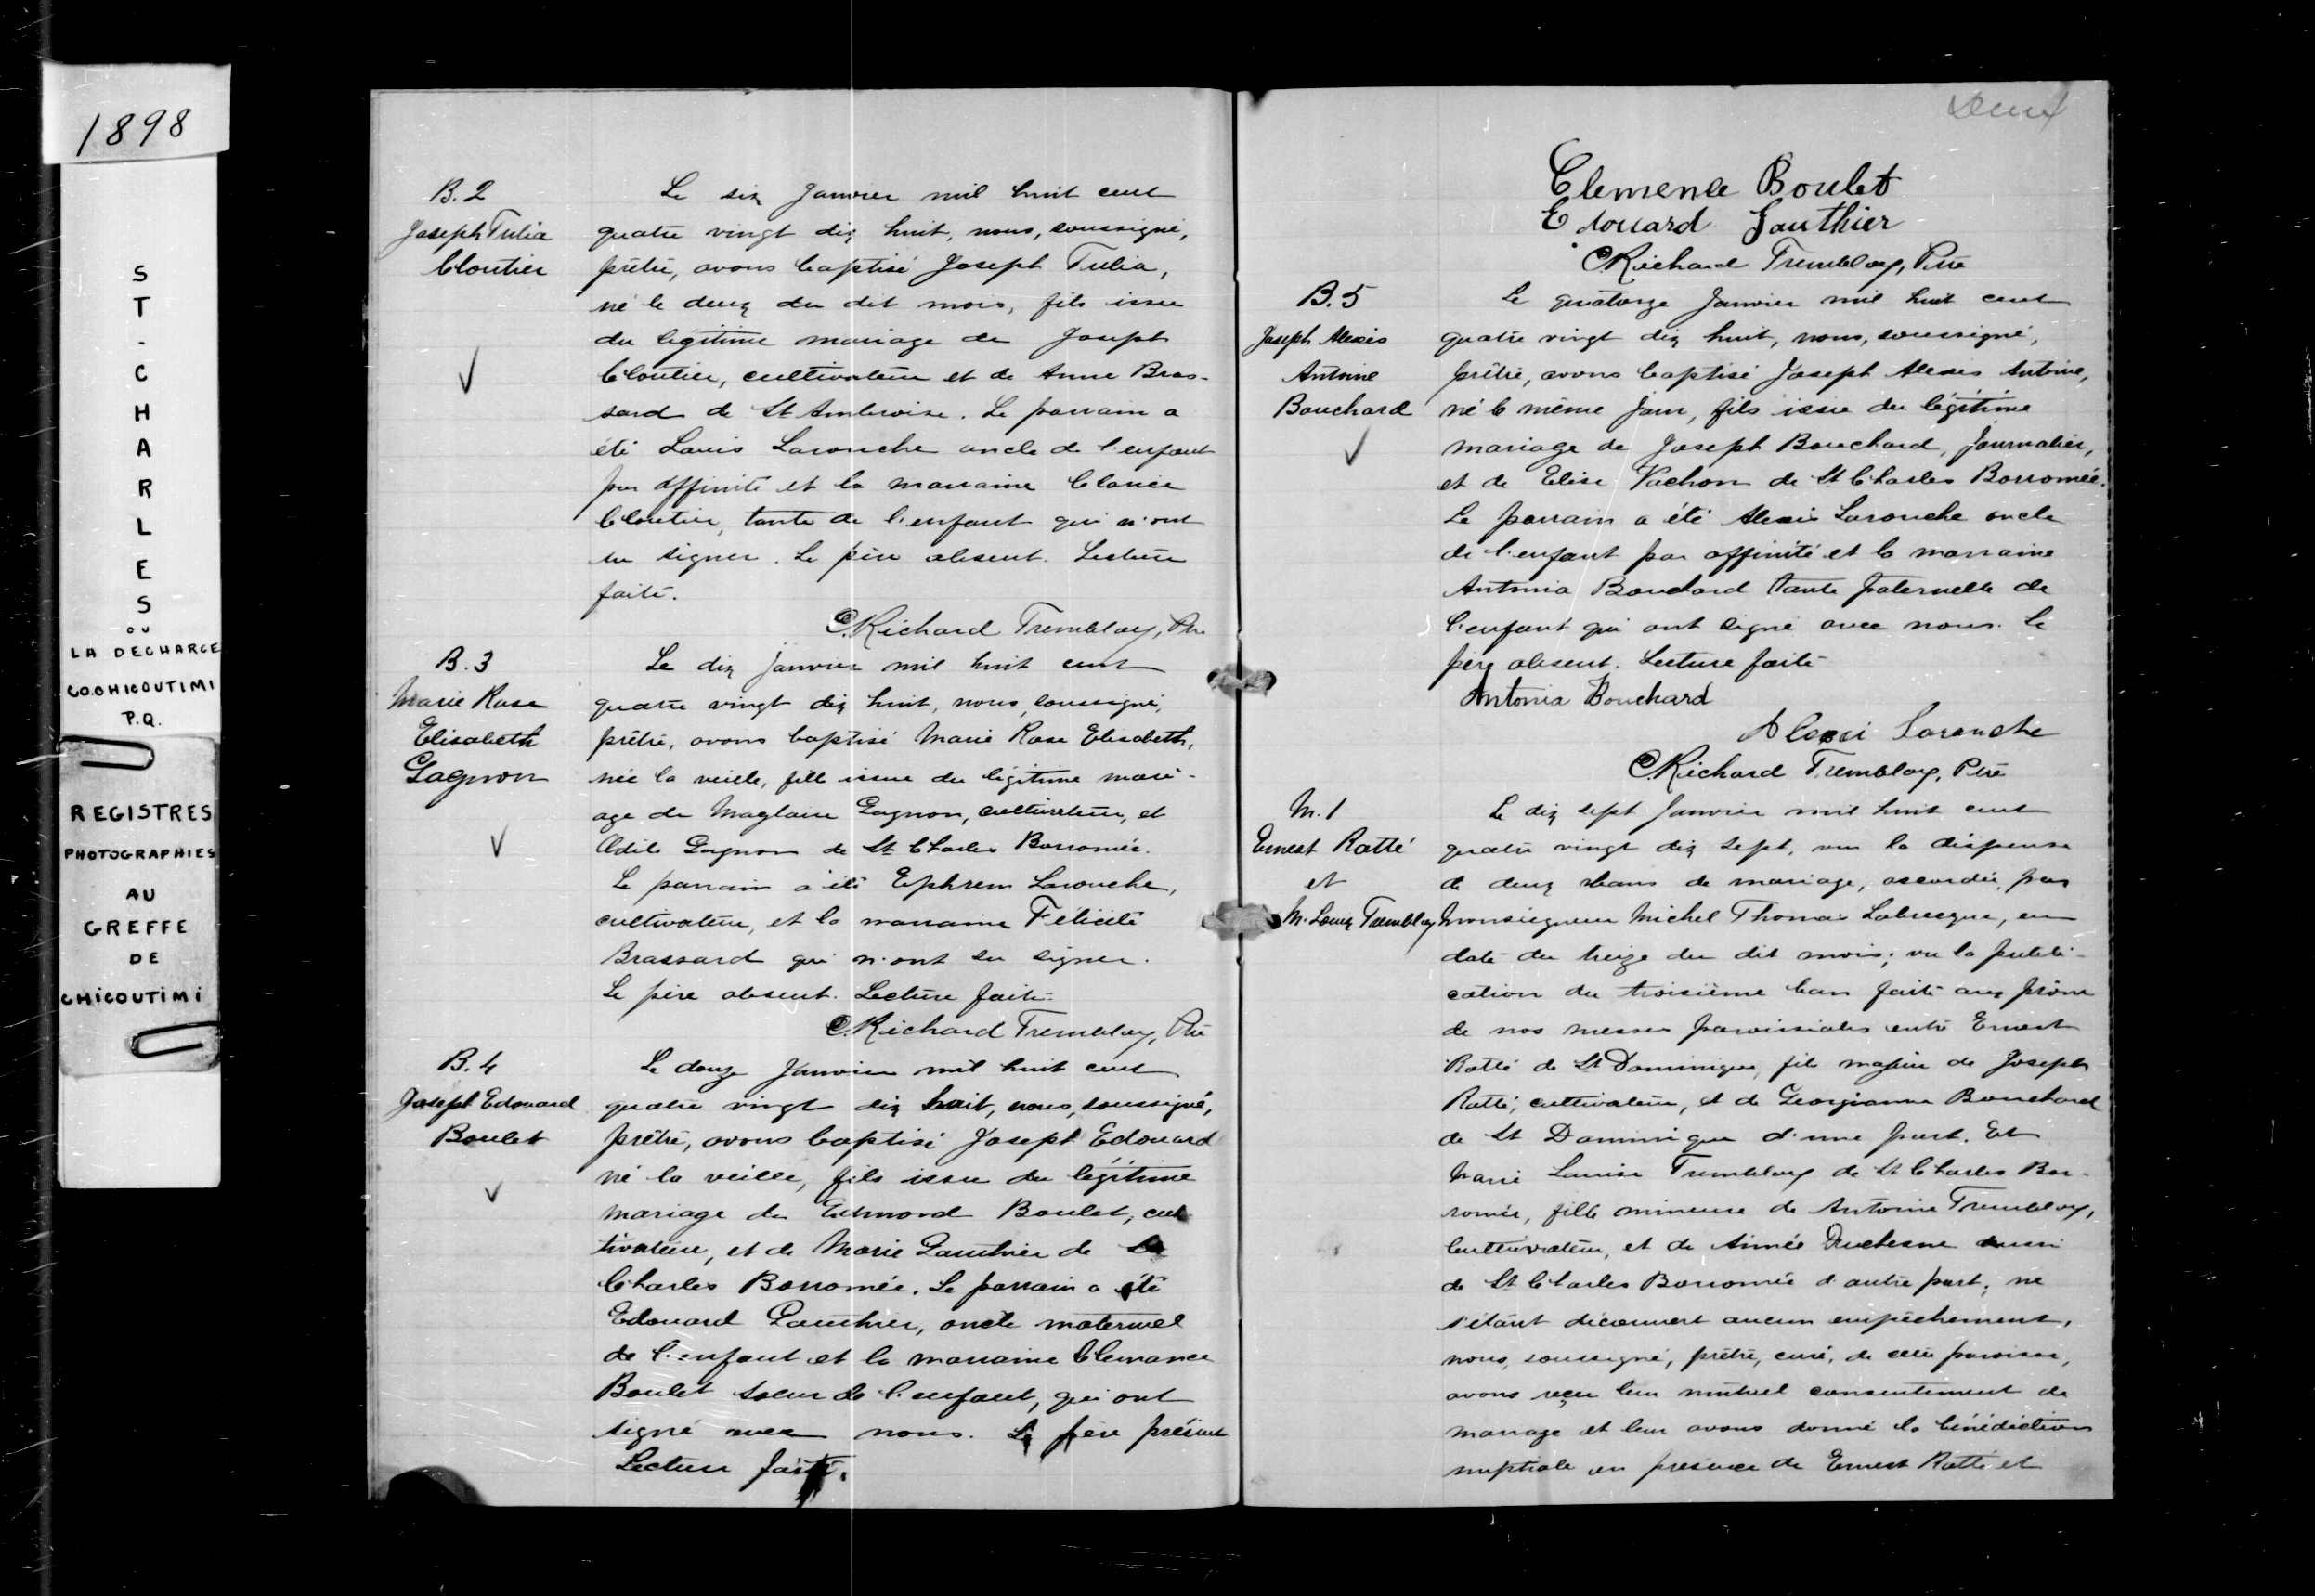 1898
ST-CHARLES
OU
LA DECHARGE
CO. CHICOUTIMI
P.Q.
REGISTRES
PHOTOGRAPHIES
AU
GREFFE
DE
CHICOUTIMI
B. 2
Joseph Tulia
Cloutier
Le six Janvier mil huit cent
quatre vingt dix huit, nous, soussigné,
prêtre, avons baptisé Joseph Tulia,
né le deux du dit mois, fils issu
du légitime mariage de Joseph
Cloutier, cultivateur et de Anne Bras-
sard de St Ambroise. Le parrain a
été Louis Larouche oncle de l'enfant
par affinité et la marraine
Cloutier, tante de l'enfant qui n'ont
su signer. Le père absent. Lecture
faite.
C. Richard Tremblay, Ptre
B. 3
Marie Rose
Elisabeth
Gagnon
Le dix janvier mil huit cent
quatre vingt dix huit, nous, soussigné,
prêtre, avons baptisé Marie Rose Elisabeth,
née la veille, fille issue du légitime mari-
age de Maglaire Gagnon, cultivateur, et
Odile Gagnon de St Charles Borromée.
Le parrain a été Ephrem Larouche,
cultivateur, et la marraine Félicité
Brassard qui n'ont su signer.
Le père absent. Lecture faite.
C. Richard Tremblay, Ptre
B. 4
Joseph Edouard
Boulet
Le douze Janvier mil huit cent
quatre vingt dix huit, nous, soussigné,
prêtre, avons baptisé Joseph Edouard
né la veille, fils issu du légitime
mariage de Edmond Boulet, cul
tivateur, et de Marie Gauthier de St
Charles Borromée. Le parrain a été
Edouard Gauthier, oncle maternel
de l'enfant et la marraine Clemance
Boulet soeur de l'enfant, qui ont
signé avec nous. Le père présent
Lecture faite.
Deux
Clemence Boulet
Edouard Gauthier
C. Richard Tremblay, Ptre
B. 5
Joseph Alexis
Antoine
Bouchard
Le quatorze Janvier mil huit cent
quatre vingt dix huit, nous, soussigné,
prêtre, avons baptisé Joseph Alexis Antoine,
né le même jour, fils issu du légitime
mariage de Joseph Bouchard, journalier,
et de Elise Vachon de St Charles Borromée.
Le parrain a été Alexis Larouche oncle
de l'enfant par affinité et la marraine
Antonia Bouchard tante paternelle de
l'enfant qui ont signé avec nous. Le
père absent. Lecture faite
Antonia Bouchard
Alexi Larouche
C. Richard Tremblay, Ptre
M. 1
Ernest Ratté
et
M. Louise Tremblay
Le dix sept Janvier mil huit cent
quatre vingt dix sept, vu la dispense
de deux bans de mariage, accordée par
Monseigneur Michel Thomas Labrecque, en
date du treize du dit mois; vu la publi-
cation du troisième ban faite aux prône
de nos messes paroissiales entre Ernest
Ratté de St Dominique, fils majeur de Joseph
Ratté, cultivateur, et de Georgianna Bouchard
de St Dominique d'une part. Et
Marie Louise Tremblay de St Charles Bor-
romée, fille mineure de Antoine Tremblay,
cultivateur, et de Aimée Duchesne aussi
de St Charles Borromée d'autre part; ne
s'étant découvert aucun empêchement,
nous, soussigné, prêtre, curé, de cette paroisse,
avons reçu leur mutuel consentement de
mariage et leur avons donné la bénédiction
nuptiale en présence de Ernest Ratté et